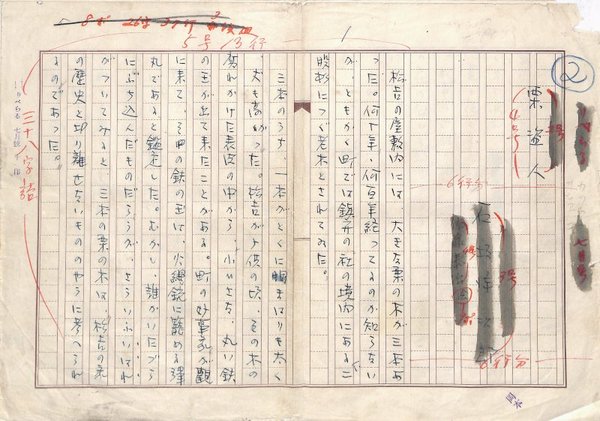 ②
栗盗人
4号
石坂洋次郎
6行分
6行分
5号 13行
三十八字詰
1
松吉の屋敷内には、大きな栗の木が三本あ
った。何十年、何百年経ってるのか知らない
が、ともかく町では鎮守の社の境内にある
股杉につぐ老木とされてゐた。
三本のうち、一本がとくに幹まはりも太く
、丈も高かった。松吉が子供の頃、その木の
腐れかけた表皮の中から、小さな、丸い鉄
の玉が出て来たことがある。町の好事家が観
に来て、その鉄の玉は、火縄銃に籠める弾
丸であると鑑定した。むかし、誰がいたづら
にぶち込んだものだらうが、さういふいはれ
がついてみると、三本の栗の木は、松吉の家
の歴史と切り離せないもののやうに考へられ
るのであった。